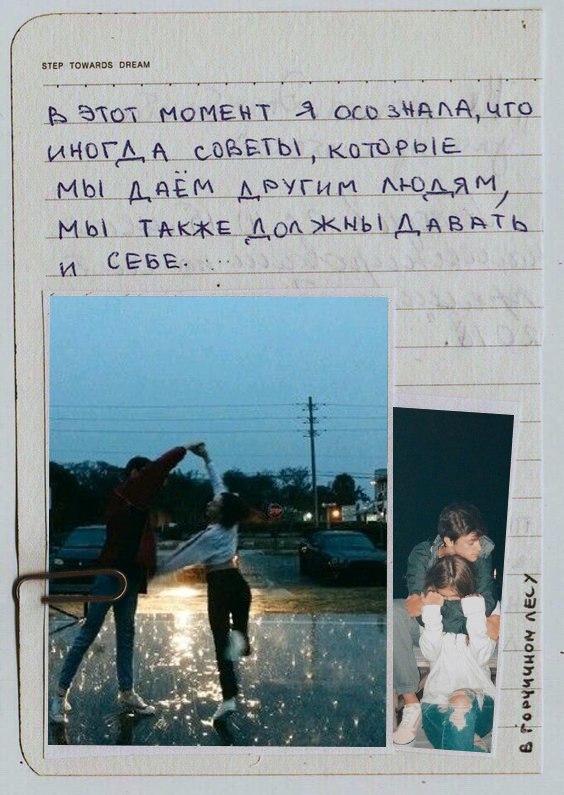 STEP TOWARDS DREAM
В ЭТОТ МОМЕНТ Я ОСОЗНАЛА, ЧТО
ИНОГДА СОВЕТЫ, КОТОРЫЕ
МЫ ДАЁМ ДРУГИМ ЛЮДЯМ,
МЫ ТАКЖЕ ДОЛЖНЫ ДАВАТЬ
И СЕБЕ.....
STOP
В ГОРЧИЧНОМ ЛЕСУ